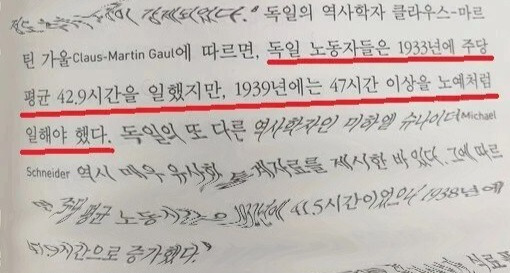 강제되었다." 독일의 역사학자 클라우스-마르
틴 가울Claus-Martin Gaul에 따르면, 독일 노동자들은 1933년에 주당
평균 42.9시간을 일했지만, 1939년에는 47시간 이상을 노예처럼
일해야 했다. 독일의 또 다른 역사학자인 미하엘 슈나이더Michael
Schneider 역시 매우 유사한 자료를 제시한 바 있다. 그에 따르
주당 평균 노동시간은 41.5시간이었으나 1938년에
47.9시간으로 증가했다."